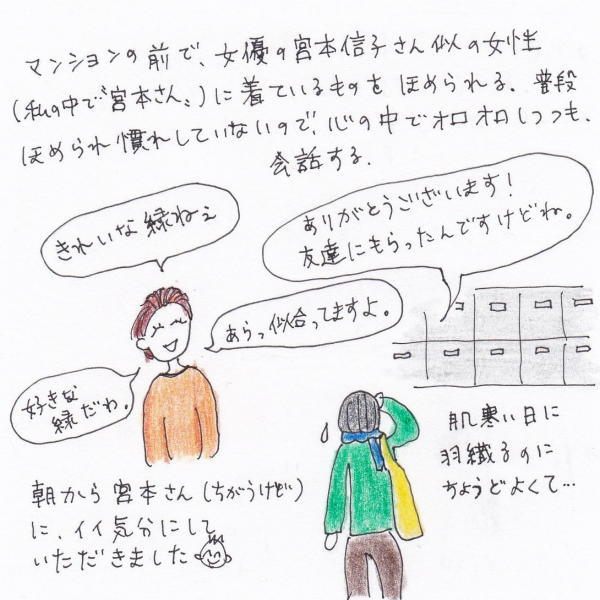 マンションの前で、女優の宮本信子さん似の女性
(私の中で〝宮本さん〟)に着ているものをほめられる。普段
ほめられ慣れしていないので、心の中でオロオロしつつも、
会話する。
きれいな緑ねぇ
ありがとうございます!
友達にもらったんですけどね。
あらっ似合ってますよ。
好きな
緑だわ。
肌寒い日に
羽織るのに
ちょうどよくて…
朝から宮本さん(ちがうけど)
に、イイ気分にして
いただきました